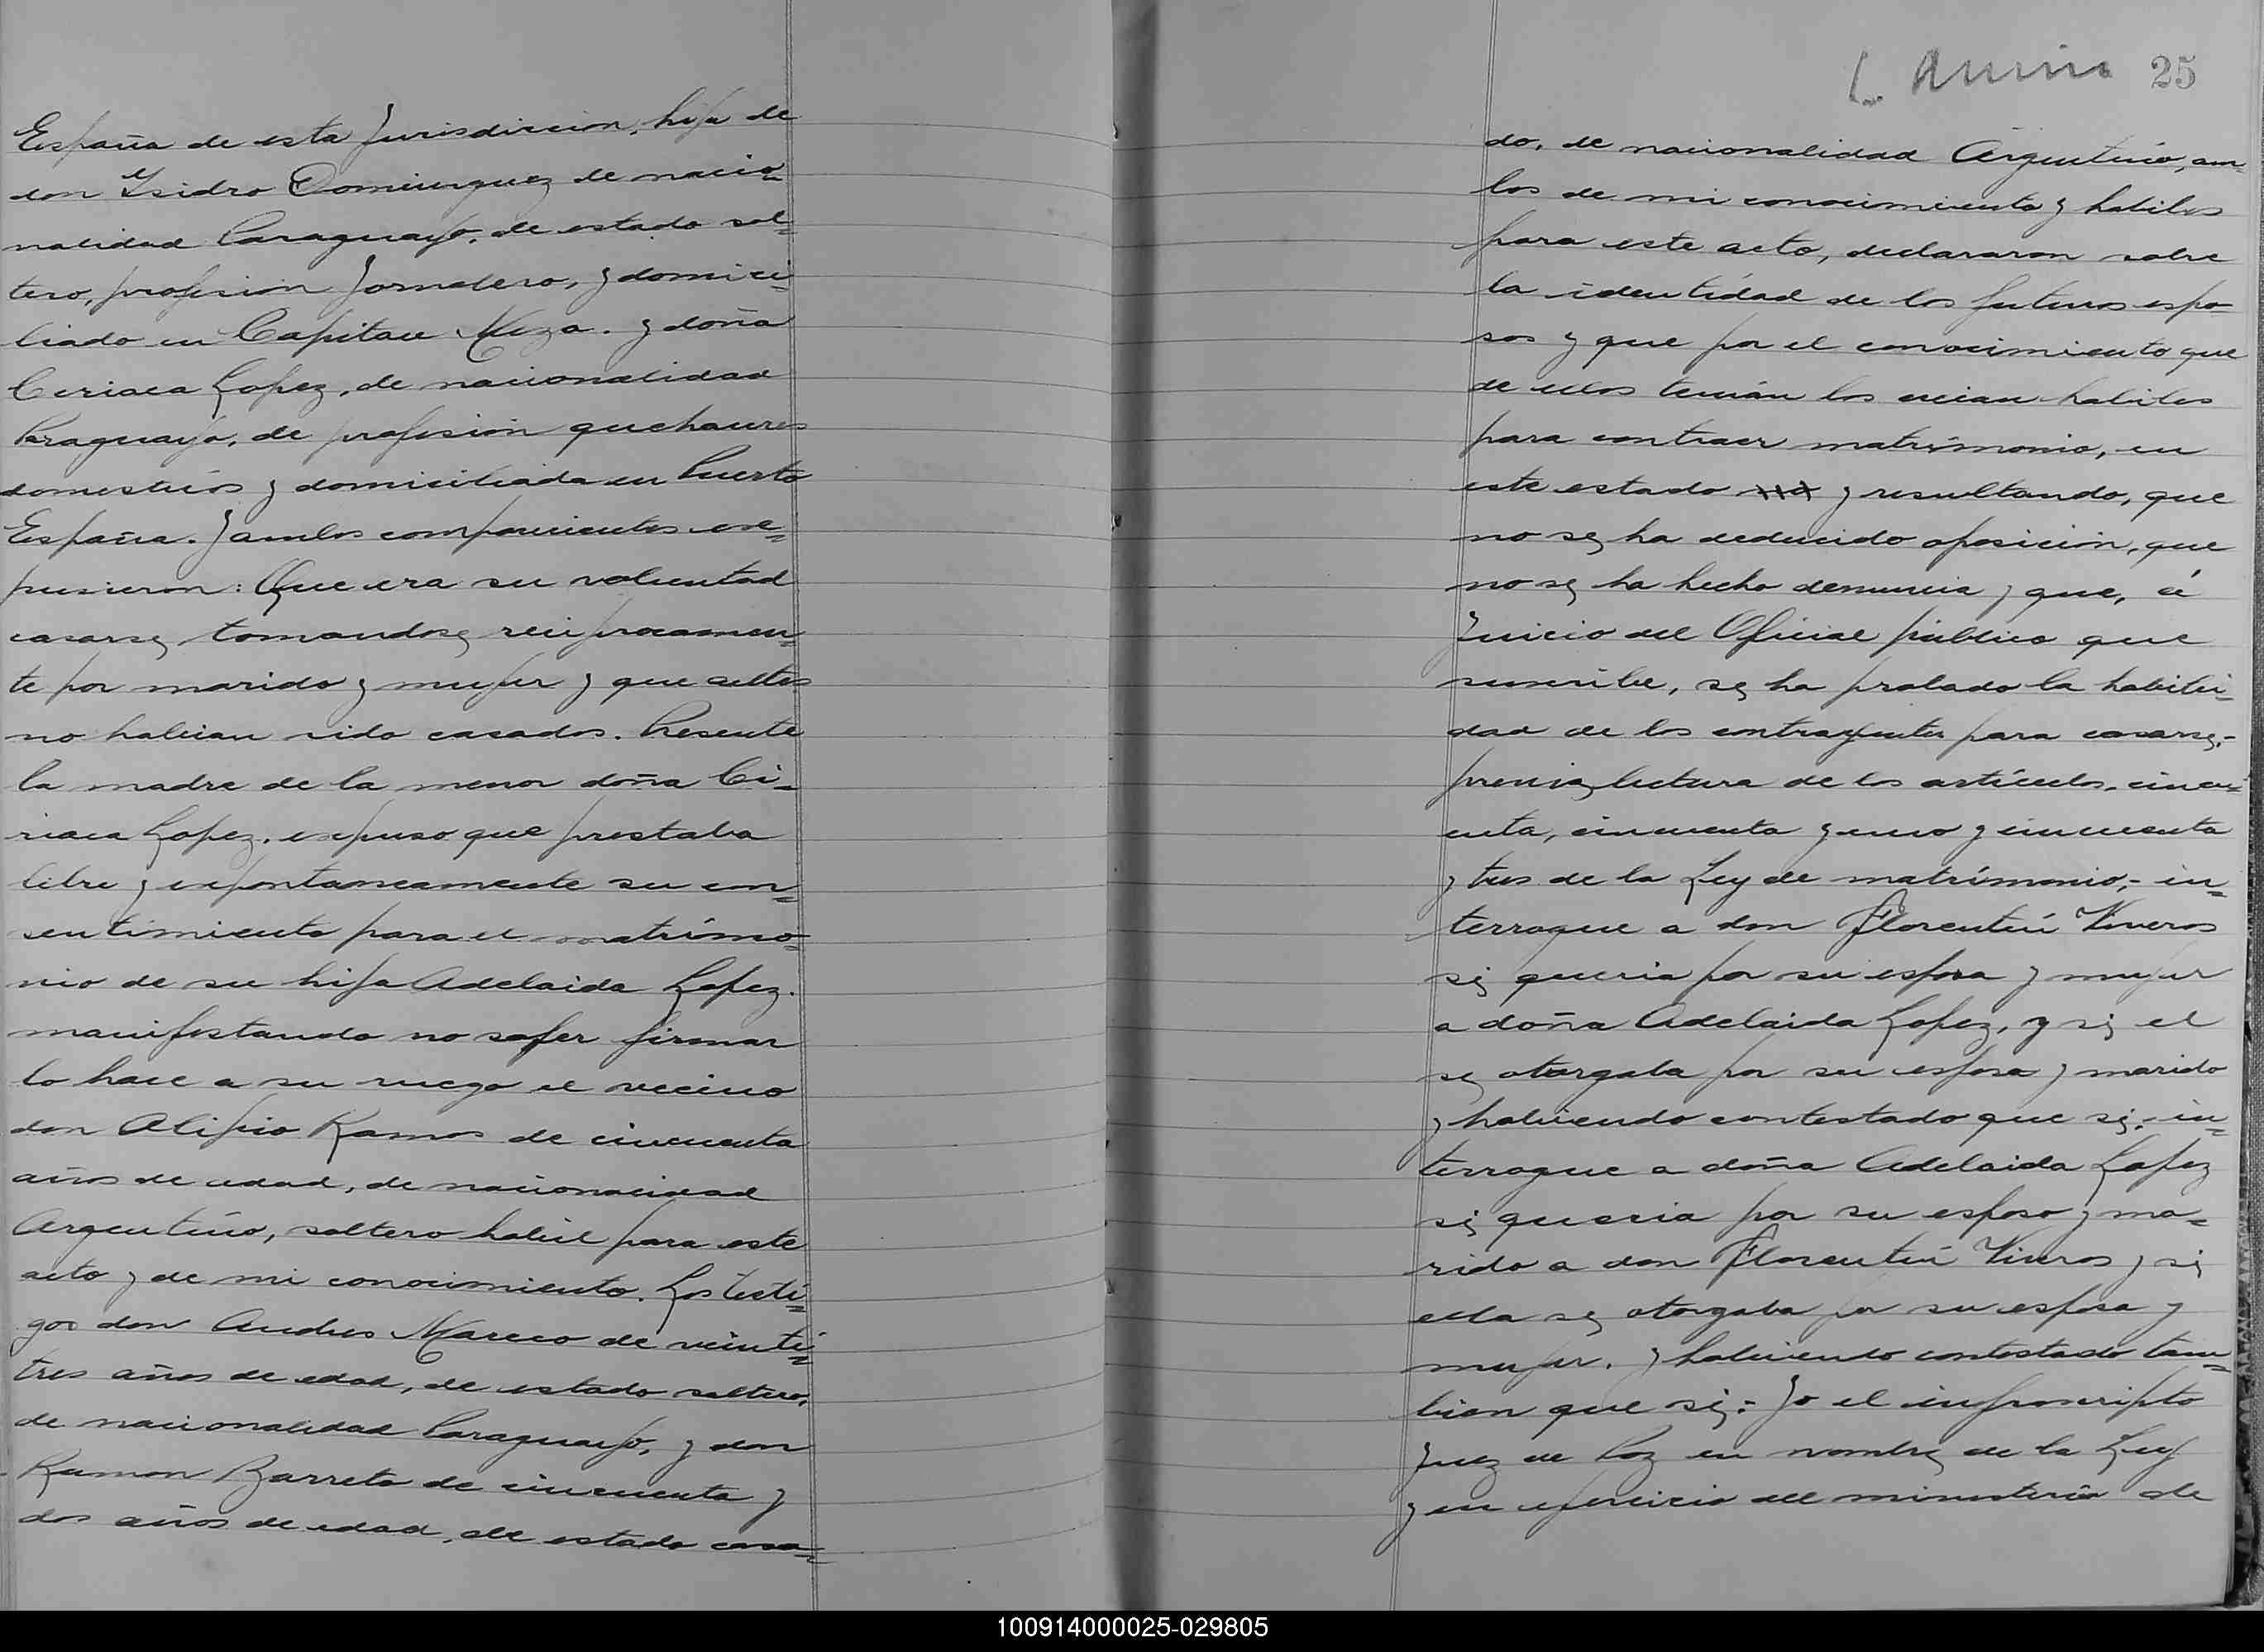 España de esta Jurisdiccion, hija de
don Ysidro Dominguez de nacio=
nalidad Paraguayo, de estado sol=
tero, profesion Jornalero, y domici=
liado en Capitan Meza. y doña
Ceriaca Lopez, de nacionalidad
Paraguaya, de profesión quehaceres
domesticos y domiciliada en Puerto
España. Y ambos comparecientes ex=
pusieron: Que era su voluntad
casarse, tomandose reciprocamen=
te por marido y mujer y que antes
no habian sido casados. Presente
la madre de la menor doña Ci=
riaca Lopez. expuso que prestaba
libre y expontaneamente su con=
sentimiento para el matrimo=
nio de su hija Adelaida Lopez.
manifestando no saber firmar
lo hace a su ruego el vecino
don Alipio Ramos de cincuenta
años de edad, de nacionalidad
Argentino, soltero habil para este
acto y de mi conocimiento. Los testi=
gos don Andres Mareco de veinti=
tres años de edad, de estado soltero,
de nacionalidad Paraguayo, y don
Ramon Barreto de cincuenta y
dos años de edad, de estado casa=
25
do, de nacionalidad Argentino, am=
bos de mi conocimiento y habiles
para este acto, declararon sobre
la identidad de los futuros espo=
sos y que por el conocimiento que
de ellos tenian los creian habiles
para contraer matrimonio, en
este estado y resultando, que
no se ha deducido oposición, que
no se ha hecho denuncia y que, á
Juicio del Oficial público que
suscribe, se ha probado la habili=
dad de los contrayentes para casarse.-
previa lectura de los artículos, cincu=
enta, cincuenta y uno y cincuenta
y tres de la Ley de matrimonio;- in=
terrogue a don Florentin Viveros
si queria por su esposa y mujer
a doña Adelaida Lopez, y si el
se otorgaba por su esposo y marido
y habiendo contestado que si;- in=
terrogue a doña Adelaida Lopez
si queria por su esposo y ma=
rido a don Florentin Viveros y si
ella se otorgaba por su esposa y
mujer. y habiendo contestado tam=
bien que si;- Yo el infrascripto
Juez de Paz en nombre de la Ley
y en ejercicio del ministerio de
100914000025-029805